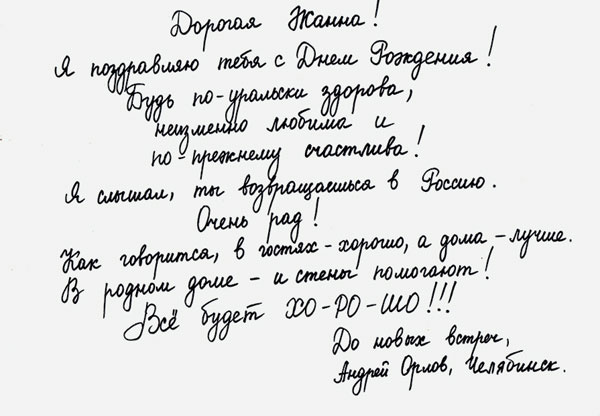 Дорогая Жанна!
Я поздравляю тебя с Днем Рождения!
Будь по-уральски здорова,
неизменно любима и
по-прежнему счастлива!
Я слышал, ты возвращаешься в Россию.
Очень рад!
Как говорится, в гостях - хорошо, а дома - лучше.
В родном доме - и стены помогают!
Всё будет ХО-РО-ШО!!!
До новых встреч,
Андрей Орлов, Челябинск.